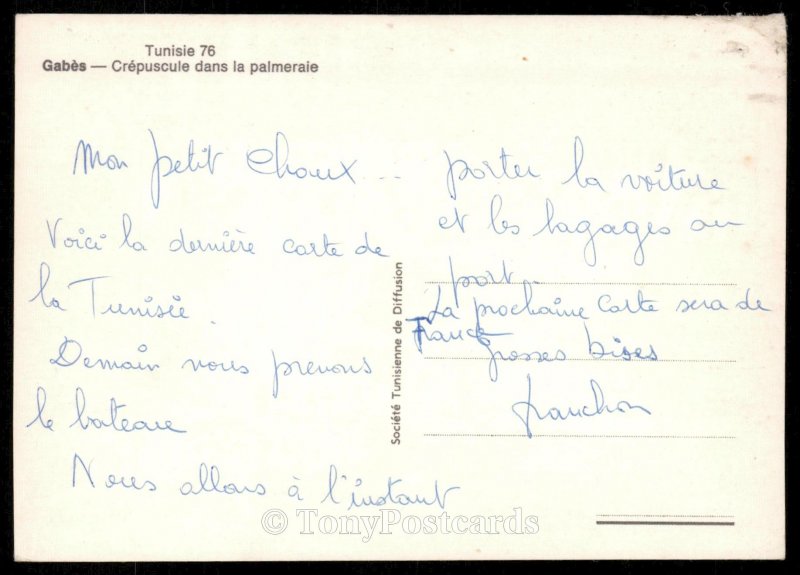 Tunisie 76
Gabès — Crépuscule dans la palmeraie
Mon petit Choux ...
Voici la dernière carte de
la Tunisie.
Demain nous prenons
le bateau
Nous allons à l'instant
porter la voiture
et les bagages au
port.
La prochaine carte sera de
France
grosses bises
franchon
Société Tunisienne de Diffusion
© TonyPostcards